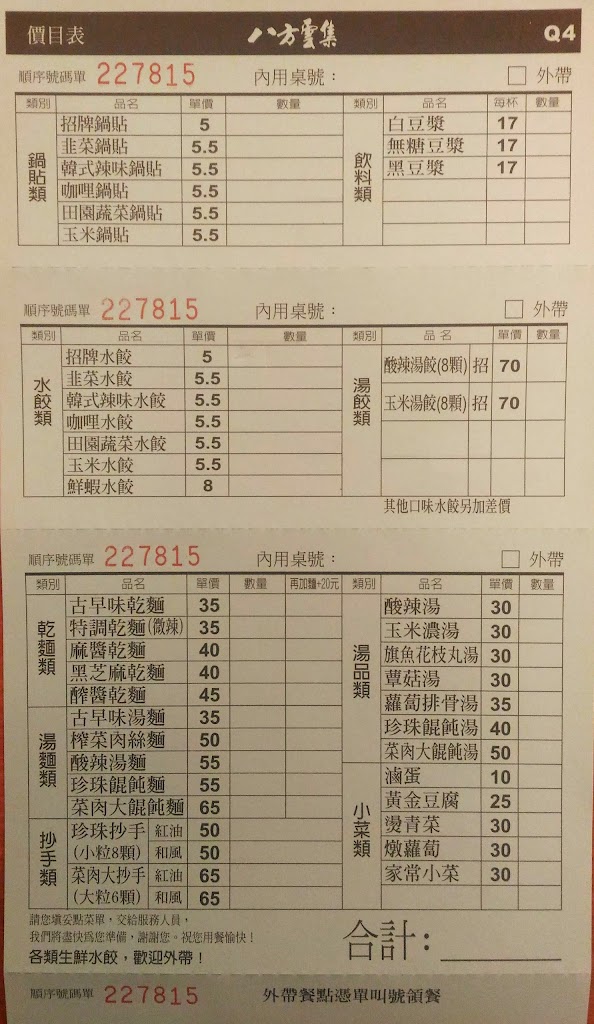 價目表 八方雲集 Q4
順序號碼單 227815 內用桌號： □ 外帶
類別 品名 單價 數量 類別 品名 每杯 數量
鍋貼類 飲料類
招牌鍋貼 5 白豆漿 17
韭菜鍋貼 5.5 無糖豆漿 17
韓式辣味鍋貼 5.5 黑豆漿 17
咖哩鍋貼 5.5
田園蔬菜鍋貼 5.5
玉米鍋貼 5.5
順序號碼單 227815 內用桌號： □ 外帶
類別 品名 單價 數量 品名 單價 數量
水餃類 湯餃類
招牌水餃 5 酸辣湯餃(8顆) 招 70
韭菜水餃 5.5
韓式辣味水餃 5.5 玉米湯餃(8顆) 招 70
咖哩水餃 5.5
田園蔬菜水餃 5.5
玉米水餃 5.5
鮮蝦水餃 8
其他口味水餃另加差價
順序號碼單 227815 內用桌號： □ 外帶
類別 品名 單價 數量 再加麵+20元 類別 品名 單價 數量
乾麵類 湯品類
古早味乾麵 35 酸辣湯 30
特調乾麵(微辣) 35 玉米濃湯 30
麻醬乾麵 40 旗魚花枝丸湯 30
黑芝麻乾麵 40 蕈菇湯 30
醡醬乾麵 45 蘿蔔排骨湯 35
湯麵類
古早味湯麵 35 珍珠餛飩湯 40
榨菜肉絲麵 50 菜肉大餛飩湯 50
小菜類
酸辣湯麵 55 滷蛋 10
珍珠餛飩麵 55 黃金豆腐 25
菜肉大餛飩麵 65 燙青菜 30
抄手類
珍珠抄手 紅油 50 燉蘿蔔 30
(小粒8顆) 和風 50 家常小菜 30
菜肉大抄手 紅油 65
(大粒6顆) 和風 65
請您填妥點菜單，交給服務人員，
我們將盡快為您準備，謝謝您。祝您用餐愉快！
各類生鮮水餃，歡迎外帶！
合計：
順序號碼單 227815 外帶餐點憑單叫號領餐